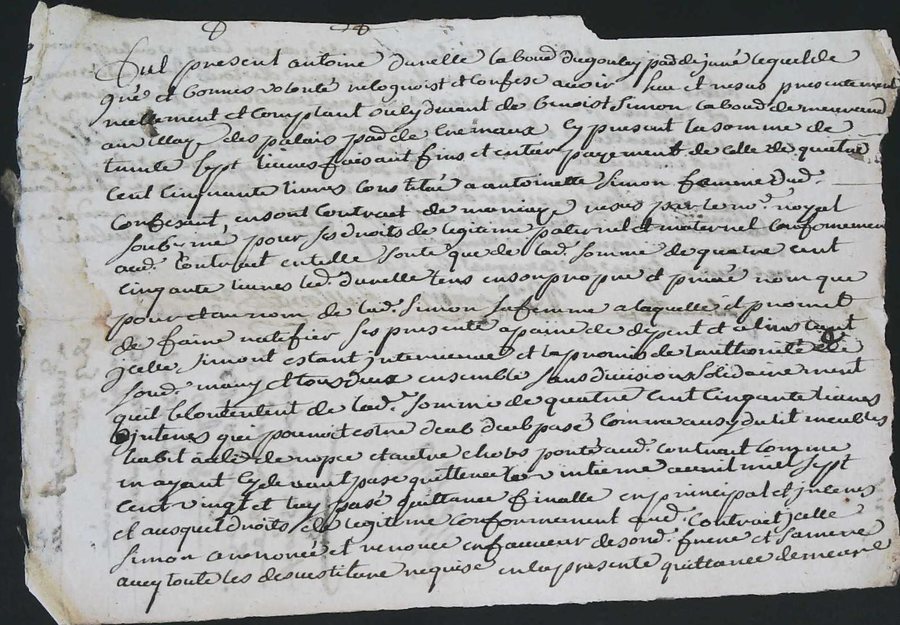 fut present antoine Durelle laboud du goutey paᵈ de juré lequel de
gré et bonnes volonté reloquoist et confese avoir heu et resus presentement
reellement et Comptant ou cy devant de benoist Simon laboud de
au village des palais paᵈ de Cremaux cy present la somme de
trante sept livres faisant fins et entier payement de celle de quatre
Cent Cinquante livres Constitué a antoinette Simon femme dud.
Confesant en sont Contrait de mariage resus par le noʳᵉ royal
soub.ⁿᵉ pour ses droits de legitime paternel et maternel Conformement
aud. Contrait en telle sorte que de lad. somme de quatre cent
Cinquante livres led. durelle tens en son propre et privée nom que
pour et au nom de lad. Simon sa femme a laquelle il promet
de faire ratifier ses presente a paine de depent et a l'instant
jcelle Simont estant intervienuet et la promis de l'authorité de
soud. mary et tous deux ensemble sans division solidairement
quil le contentent de lad. somme de quatre cent Cinquante livres
dinteres qui pouroit estre deub deub pasé Comme ausy du lit meubles
habit de nopce et autre chozes porté aud. contrait Comme
en ayant cy devant pasé quittence le intieme avril mil sept
cent vingt et pasé quittance finalle en principal et jnteres
et ausquel droits de legitime Conformement aud. Contrait jcelle
Simon a renoncé et renonce en faveur de sond. frere et
avey toute les desvestiture requise en la presente quittance demeure